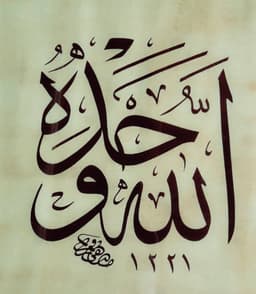 الله وحده
١٢٢١